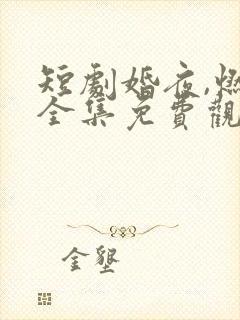 短劇婚夜,燃
全集免費觀
金墾